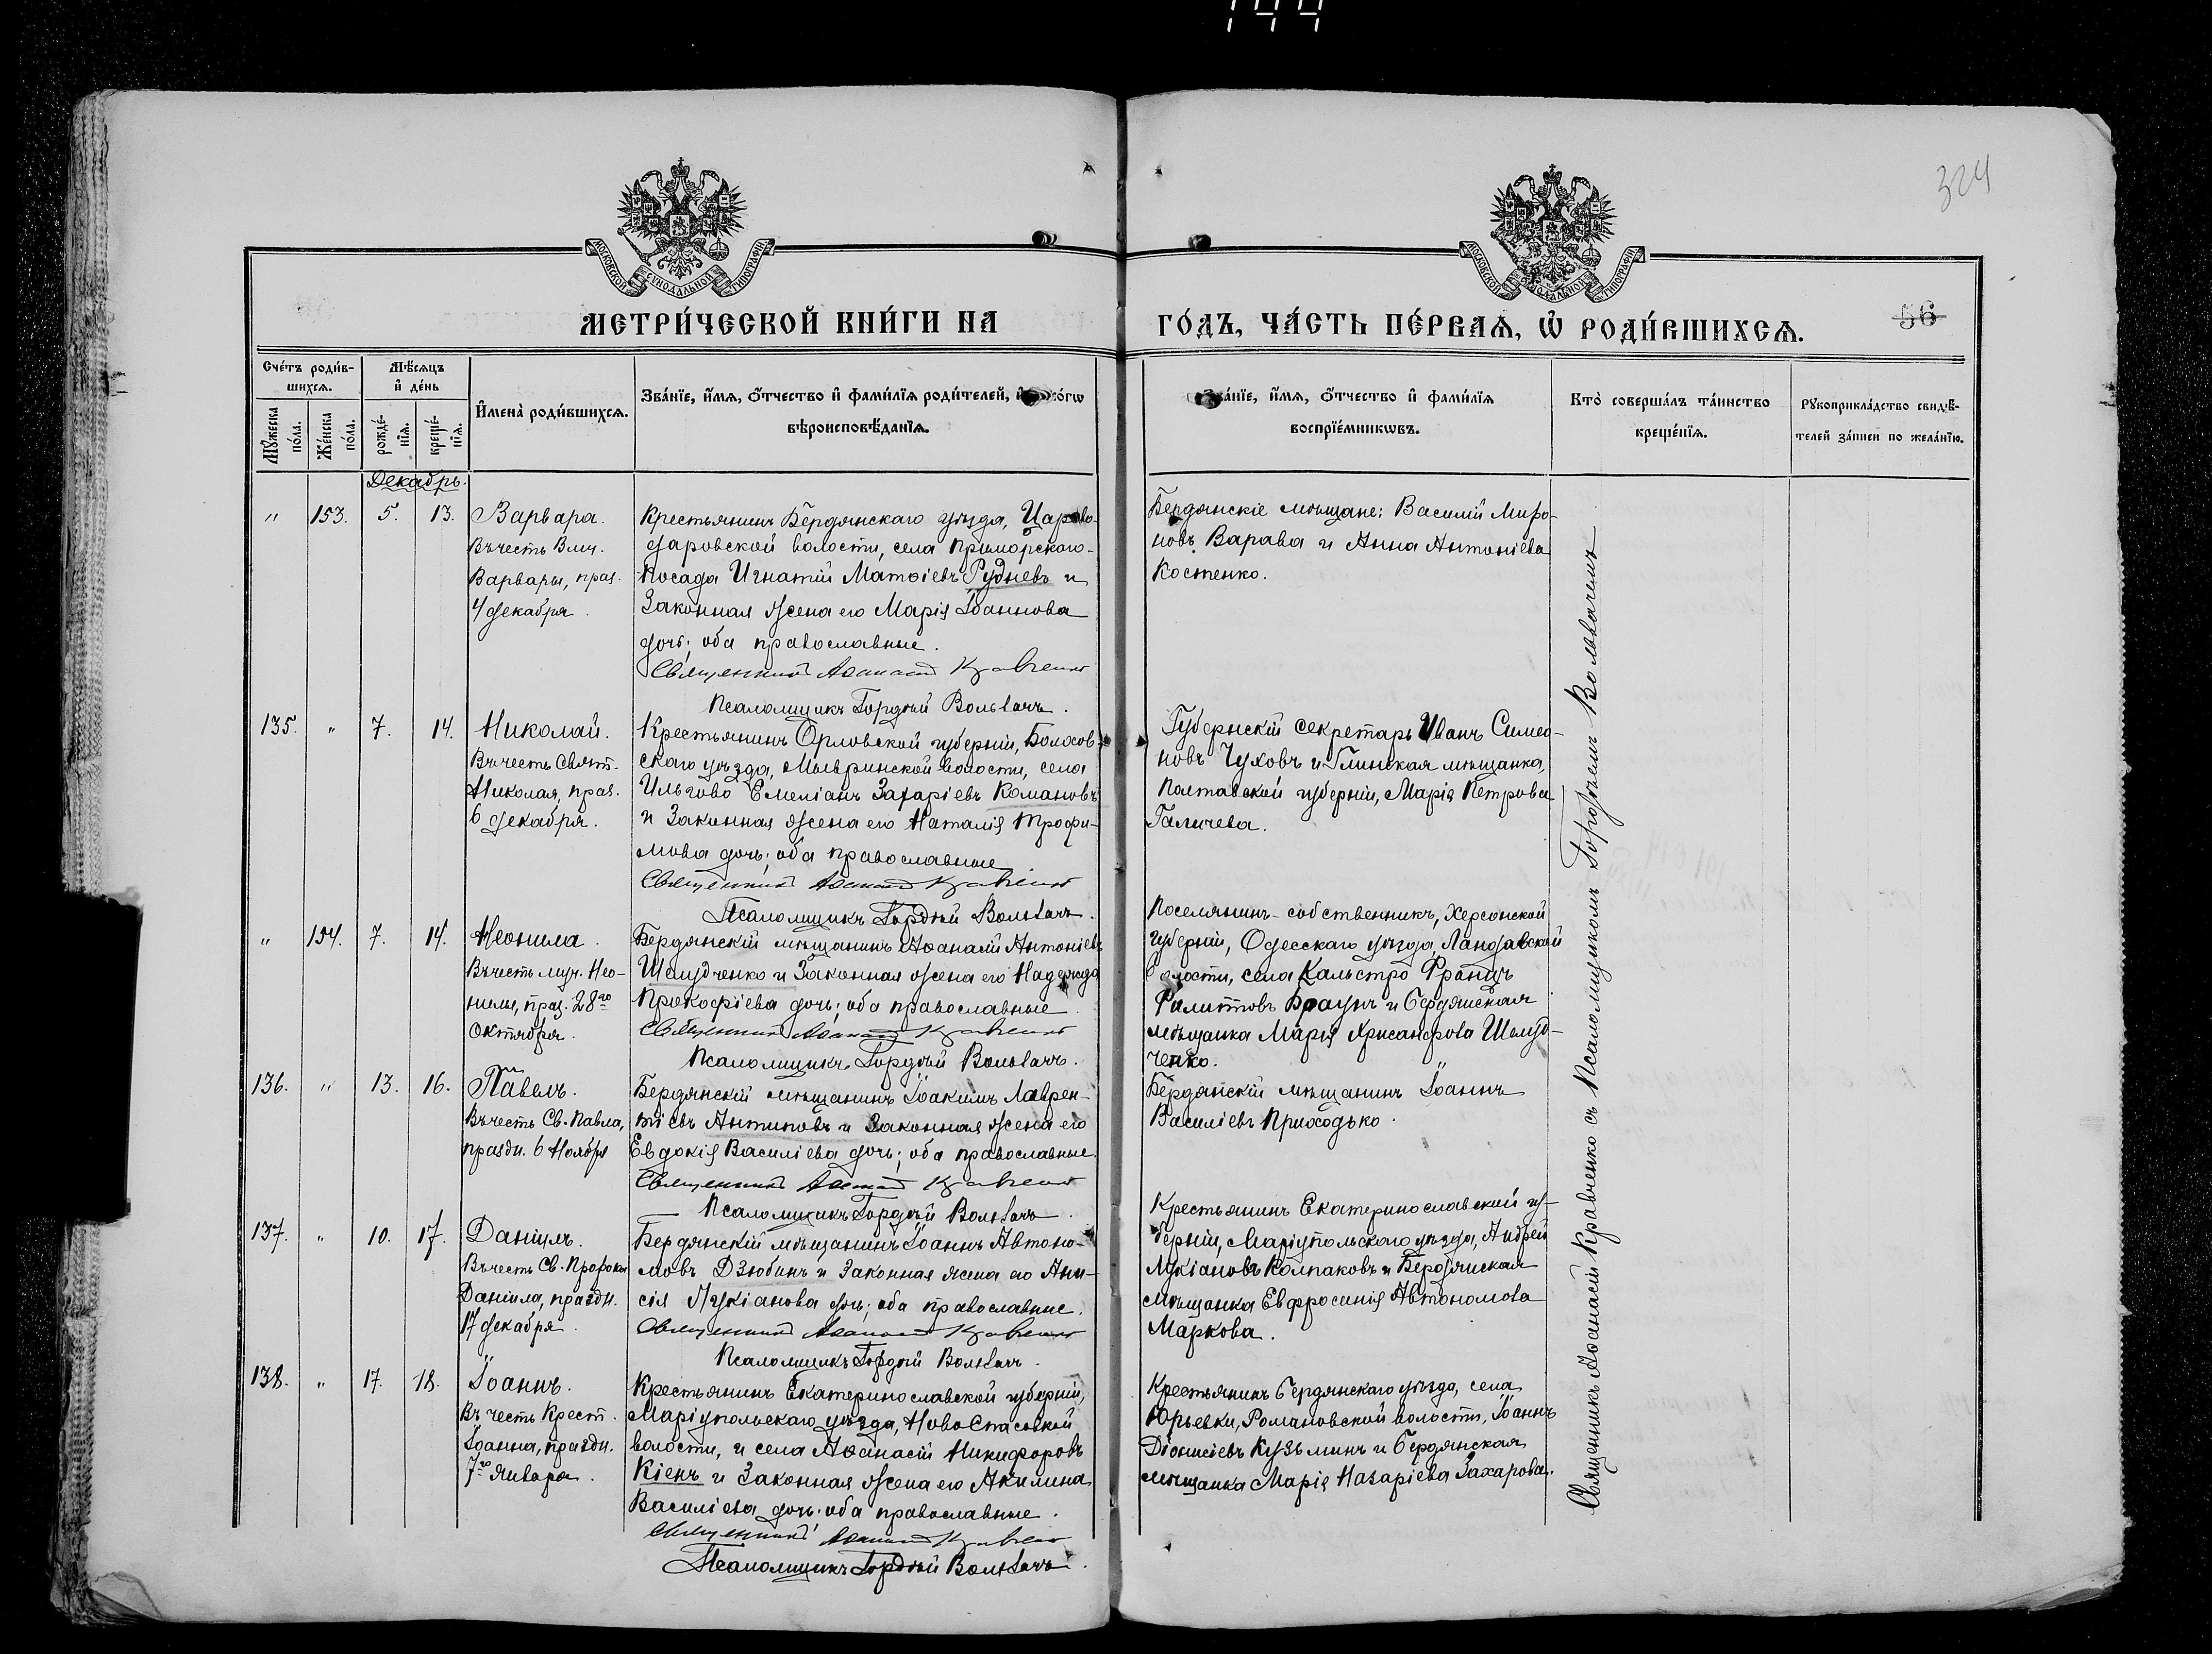 144
324
МОСКОВСКОЙ СѴНОДАЛЬНОЙ ТИПОГРАФІИ
МОСКОВСКОЙ СѴНОДАЛЬНОЙ ТИПОГРАФІИ
МЕТРИ́ЧЕСКОЙ КНИ́ГИ НА
ГО́ДЪ, ЧА́СТЬ ПЕ́РВАѦ, Ѽ РОДИ́ВШИХСѦ.
56
Сче́тъ роди́в-
шихсѧ.
Мѣ́сѧцъ
и҆ де́нь
Мꙋ́жеска
по́ла.
Же́нска
по́ла.
рожде́-
нїѧ.
креще́-
нїѧ.
И҆мена̀ роди́вшихсѧ.
Зва́нїе, и҆́мѧ, ѻ҆́тчество и҆ фами́лїѧ роди́телей, и҆
вѣроисповѣ́данїѧ.
Зва́нїе, и҆́мѧ, ѻ҆́тчество и҆ фами́лїѧ
воспрїе́мникѡвъ.
Кто̀ соверша́лъ та́инство
креще́нїѧ.
Рꙋкоприкла́дство свидѣ́-
телей за́писи по жела́нїю.
Декабрь.
" 153. 5. 13. Варвара.
Въ честь Влмч.
Варвары, праз.
4 декабря.
Крестьянинъ Бердянскаго уѣзда, Царево-
даровской волости, села Приморскаго-
Посада Игнатій Матѳіевъ Рудневъ и
законная жена его Марія Іоаннова
дочь; оба православные.
Священникъ Аѳанасій Кравченко
Псаломщикъ Гордѣй Волвачъ.
Бердянскіе мѣщане: Василій Миро-
новъ Варава и Анна Антоніева
Костенко.
135. " 7. 14. Николай.
Въ честь Свят.
Николая, праз.
6 декабря.
Крестьянинъ Орловской губерніи, Болхов-
скаго уѣзда, волости, села
Ильгово Емеліанъ Захаріевъ Романовъ
и законная жена его Наталія Трофи-
мова дочь; оба православные
Священникъ Аѳанасій Кравченко
Псаломщикъ Гордѣй Волвачъ.
Губернскій секретарь Иванъ Симео-
новъ Чуховъ и Глинская мѣщанка,
Полтавской губерніи, Марія Петрова
Галичева.
" 154. 7. 14. Неонила.
Въ честь муч. Нео-
нилы, праз. 28го
Октября.
Бердянскій мѣщанинъ Аѳанасій Антоніевъ
Шелудченко и законная жена его Надежда
Прокофіева дочь; оба православные.
Священникъ Аѳанасій Кравченко
Псаломщикъ Гордѣй Волвачъ.
Поселянинъ-собственникъ, Херсонской
губерніи, Одесскаго уѣзда, Ландавской
волости, села Францъ
Филиповъ Браунъ и Бердянская
мѣщанка Марія Хрисанфова Шелуд-
ченко.
136. " 13. 16. Павелъ.
Въ честь Св. Павла,
праздн. 6 Ноября
Бердянскій мѣщанинъ Іоакимъ Лаврен-
тіевъ Антиповъ и законная жена его
Евдокія Василіева дочь; оба православные.
Священникъ Аѳанасій Кравченко
Псаломщикъ Гордѣй Волвачъ.
Бердянскій мѣщанинъ Іоаннъ
Василіевъ Приходько.
137. " 10. 17. Даніилъ.
Въ честь Св. Пророка
Даніила, праздн.
17 декабря.
Бердянскій мѣщанинъ Іоаннъ Автоно-
мовъ Дзюбинъ и законная жена его Ани-
сія Лукіанова дочь; оба православные.
Священникъ Аѳанасій Кравченко
Псаломщикъ Гордѣй Волвачъ.
Крестьянинъ Екатеринославской гу-
берніи, Маріупольскаго уѣзда, Андрей
Лукіановъ Колпаковъ и Бердянская
мѣщанка Евфросинія Автономова
Маркова.
138. " 17. 18. Іоаннъ.
Въ честь Крест.
Іоанна, праздн.
7го Января.
Крестьянинъ Екатеринославской губерніи,
Маріупольскаго уѣзда, Ново
волости, и села Аѳанасій Никифоровъ
Кіенъ и законная жена его Акилина
Василіева дочь; оба православные.
Священникъ Аѳанасій Кравченко
Псаломщикъ Гордѣй Волвачъ.
Крестьянинъ Бердянскаго уѣзда, села
Юрьевки, Романовской волости, Іоаннъ
Діонисіевъ Кузьминъ и Бердянская
мѣщанка Марія Назаріева Захарова.
Священникъ Аѳанасій Кравченко съ Псаломщикомъ Гордѣемъ Волвачемъ